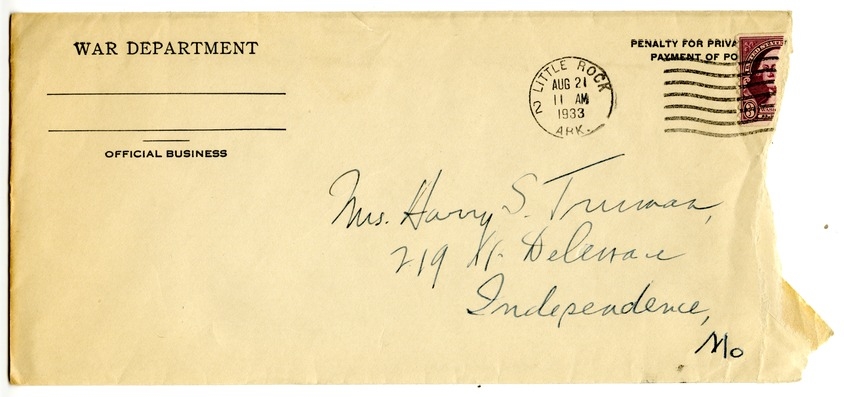 WAR DEPARTMENT
OFFICIAL BUSINESS
PENALTY FOR PRIVA
PAYMENT OF PO
LITTLE ROCK
2
AUG 21
11 AM
1933
ARK.
UNITED STATES
3
Mrs. Harry S. Truman,
219 N. Deleware
Independence,
Mo